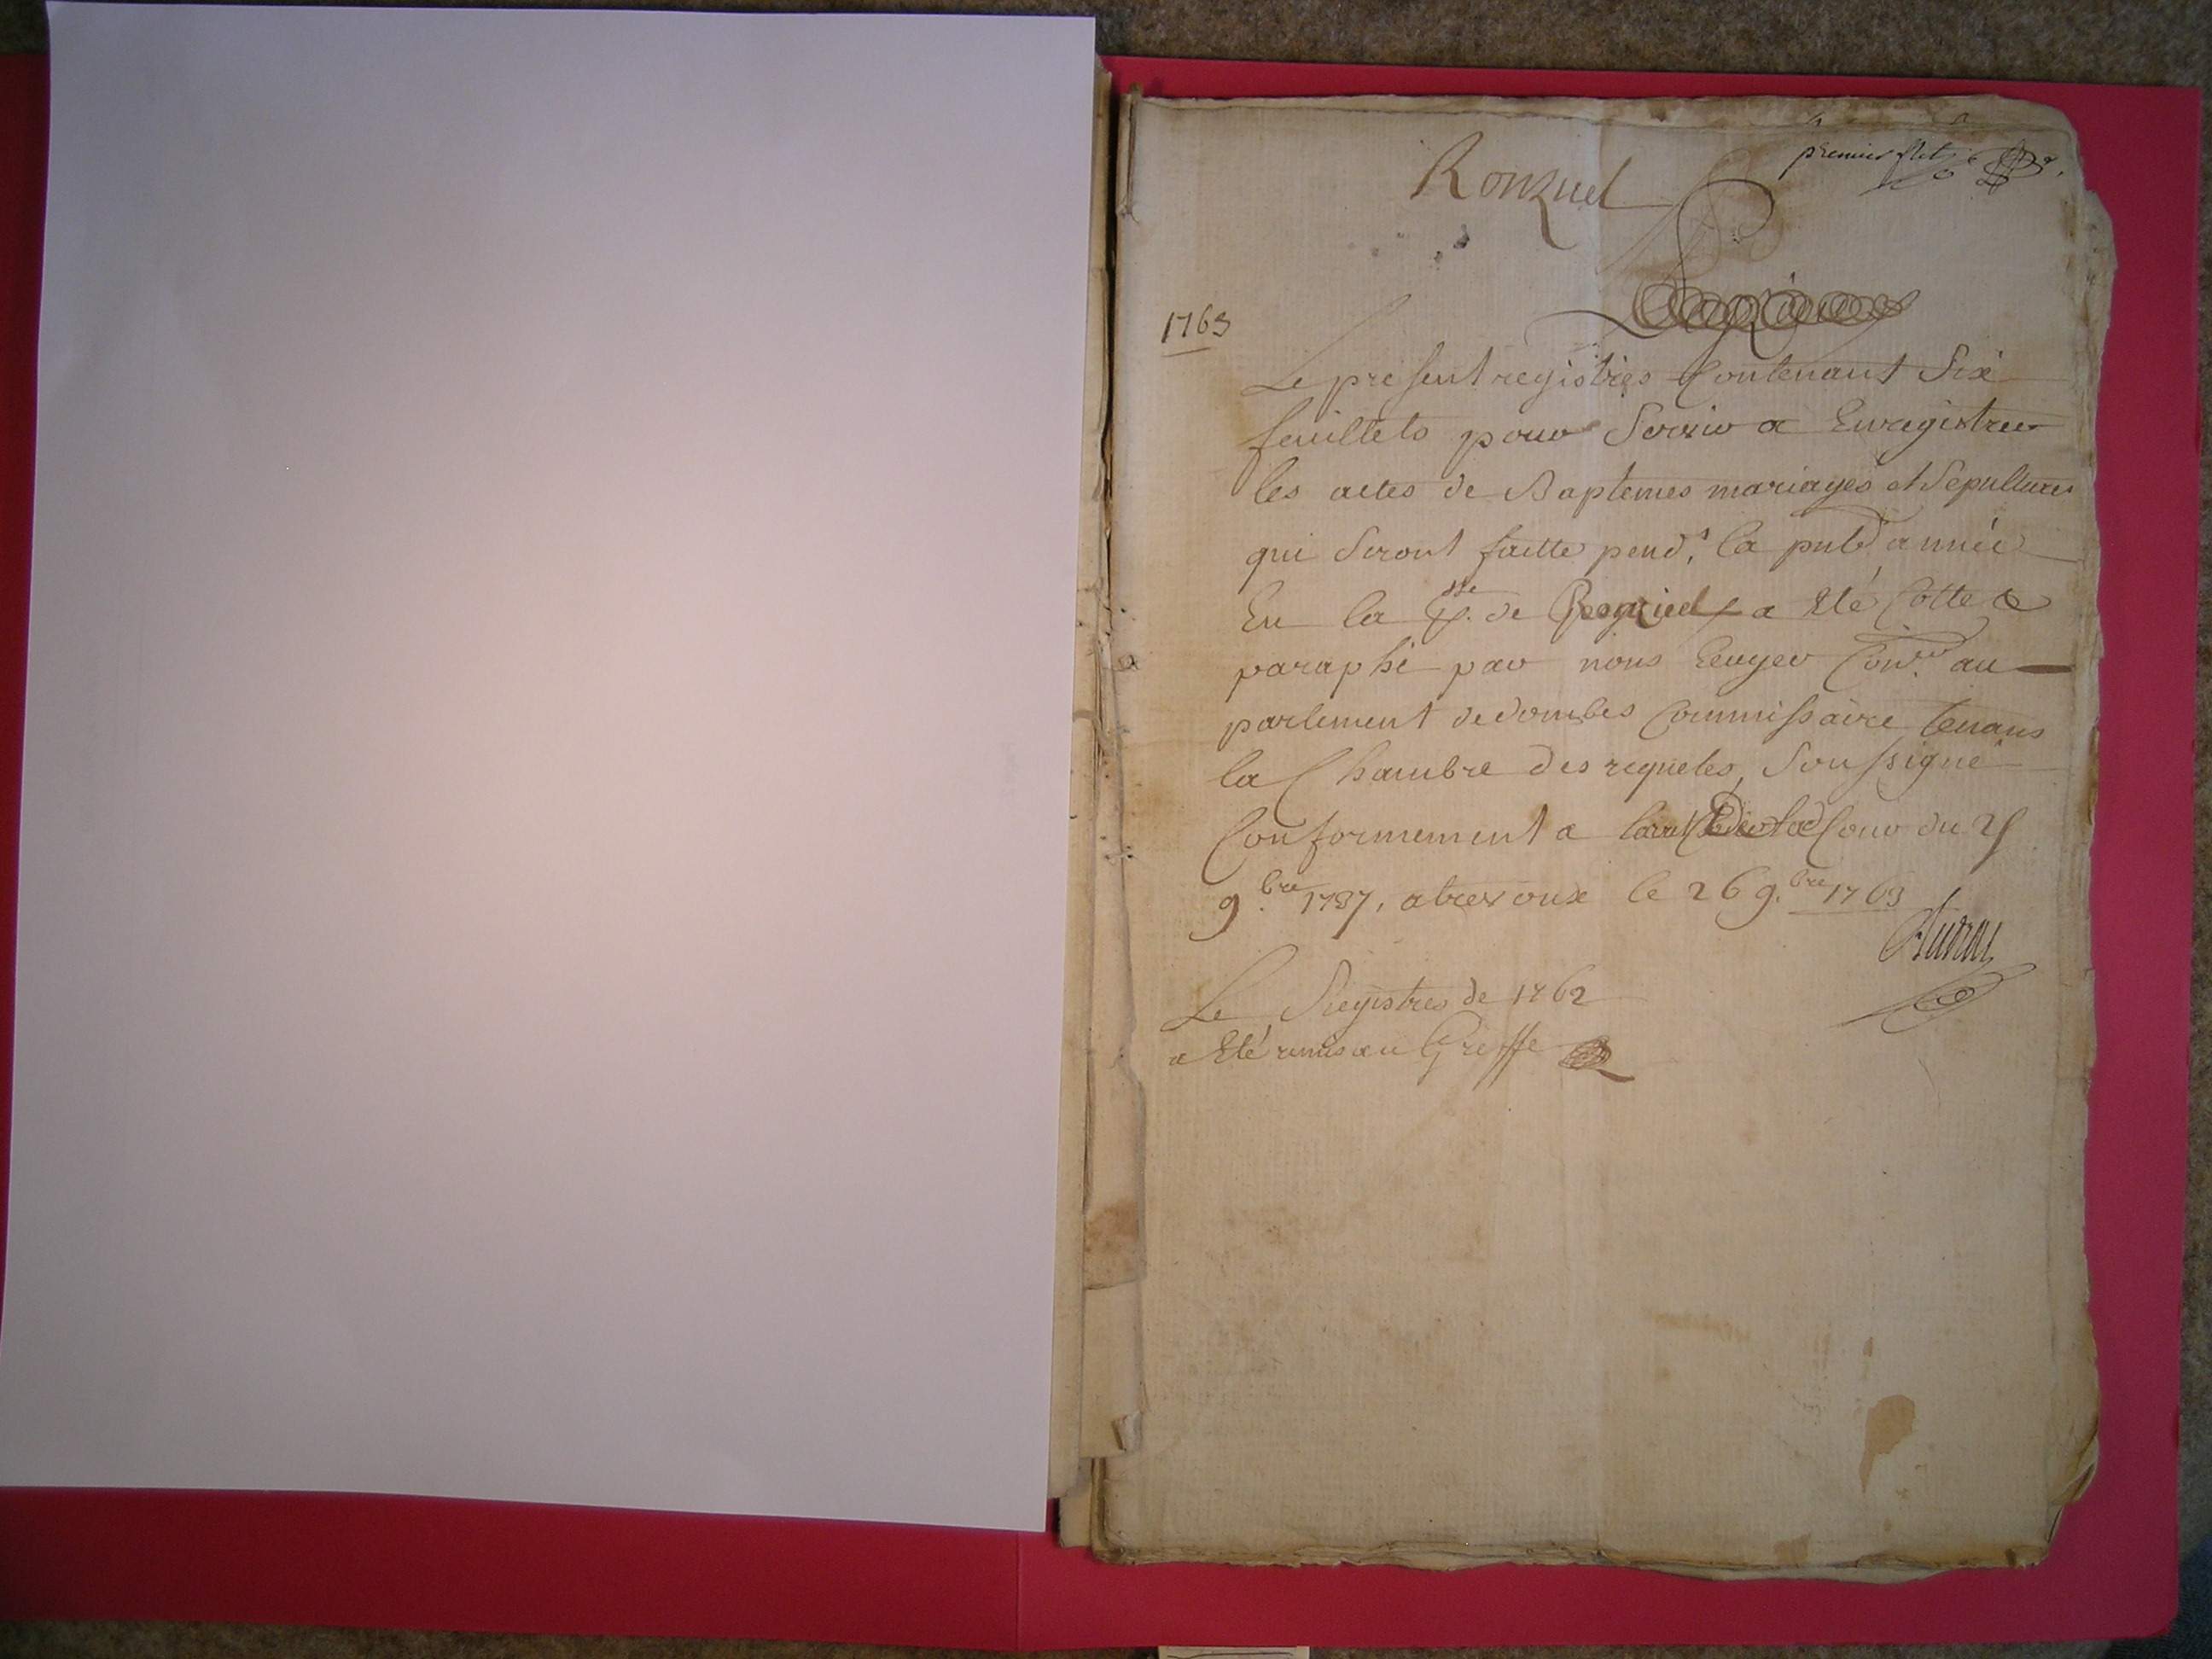 premier flet
Ronzuel
1763
Le present registres Contenant Six
feuillets pour Servir a Enregistrer
les actes de Baptemes mariages et Sepultures
qui Seront faitte pend.t la pnte année
En la p.sse de a Eté Cotte &
paraphé par nous Con.er au
parlement de dombes Commissaire tenans
la Chambre des requetes, Soussigné
Conformement a Cour du
9.bre 1737, a trevoux le 26 9.bre 1763
Le Registres de 1762
a Eté remis au Greffe